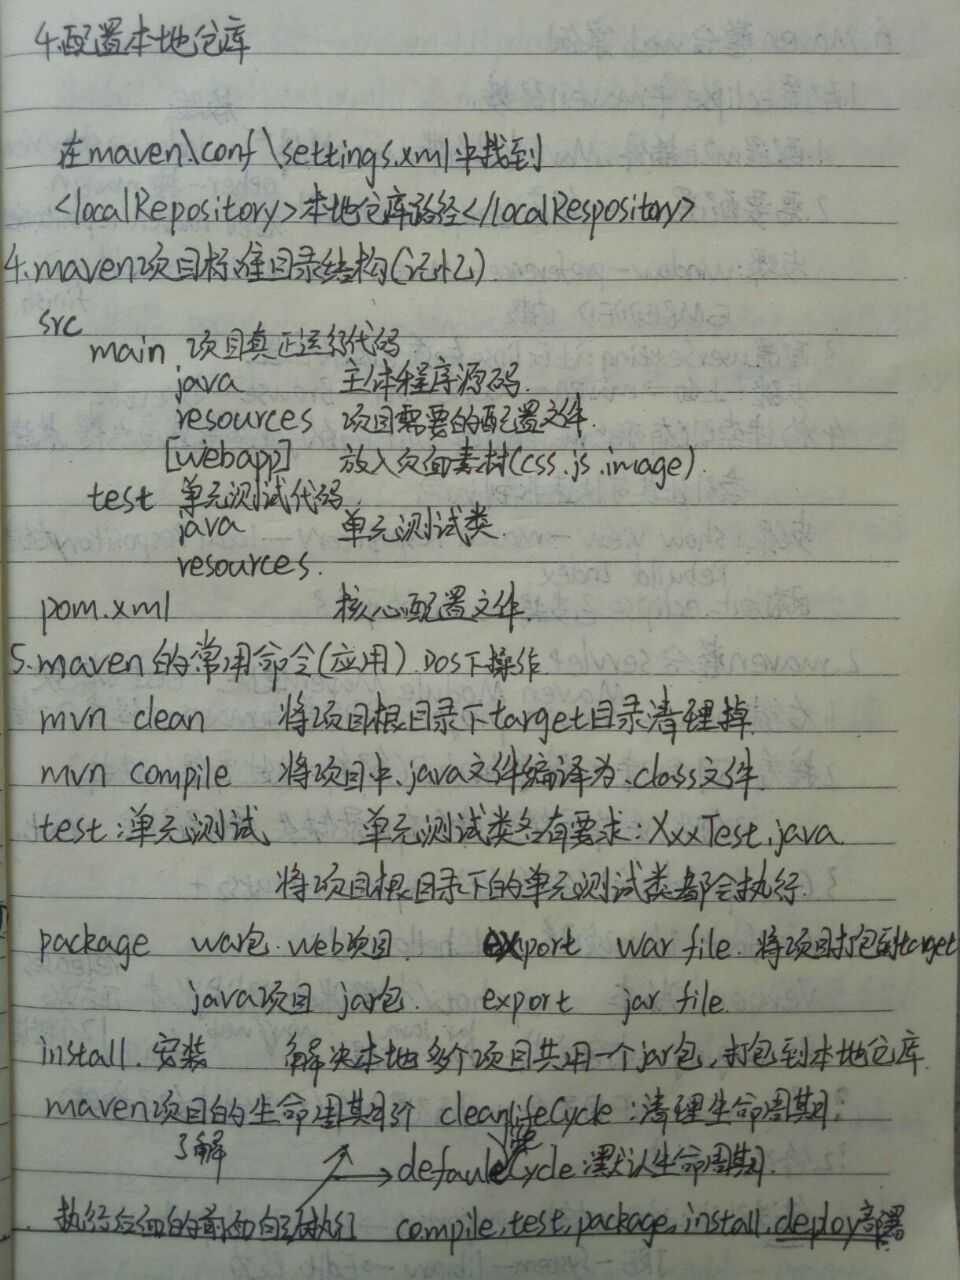 4.配置本地仓库
在maven\conf\settings.xml中找到
<localRepository>本地仓库路径</localRespository>
4.maven项目标准目录结构(记忆)
src
main 项目真正运行代码
java 主体程序源码.
resources 项目需要的配置文件.
[webapp] 放入页面素材(css.js.image).
test 单元测试代码.
java 单元测试类
resources.
pom.xml 核心配置文件.
5.maven的常用命令(应用).DOS下操作
mvn clean 将项目根目录下target目录清理掉
mvn compile 将项目中.java文件编译为.class文件
test:单元测试 单元测试类名有要求:XxxTest.java
将项目根目录下的单元测试类都会执行.
package war包.web项目. export war file.将项目打包到target
java项目 jar包. export jar file.
install.安装 解决本地多个项目共用一个jar包,打包到本地仓库.
maven项目的生命周期3个 cleanlifeCycle:清理生命周期;
了解 →defaultCycle:默认生命周期.
执行后面的前面自动执行 compile,test,package,install,deploy部署